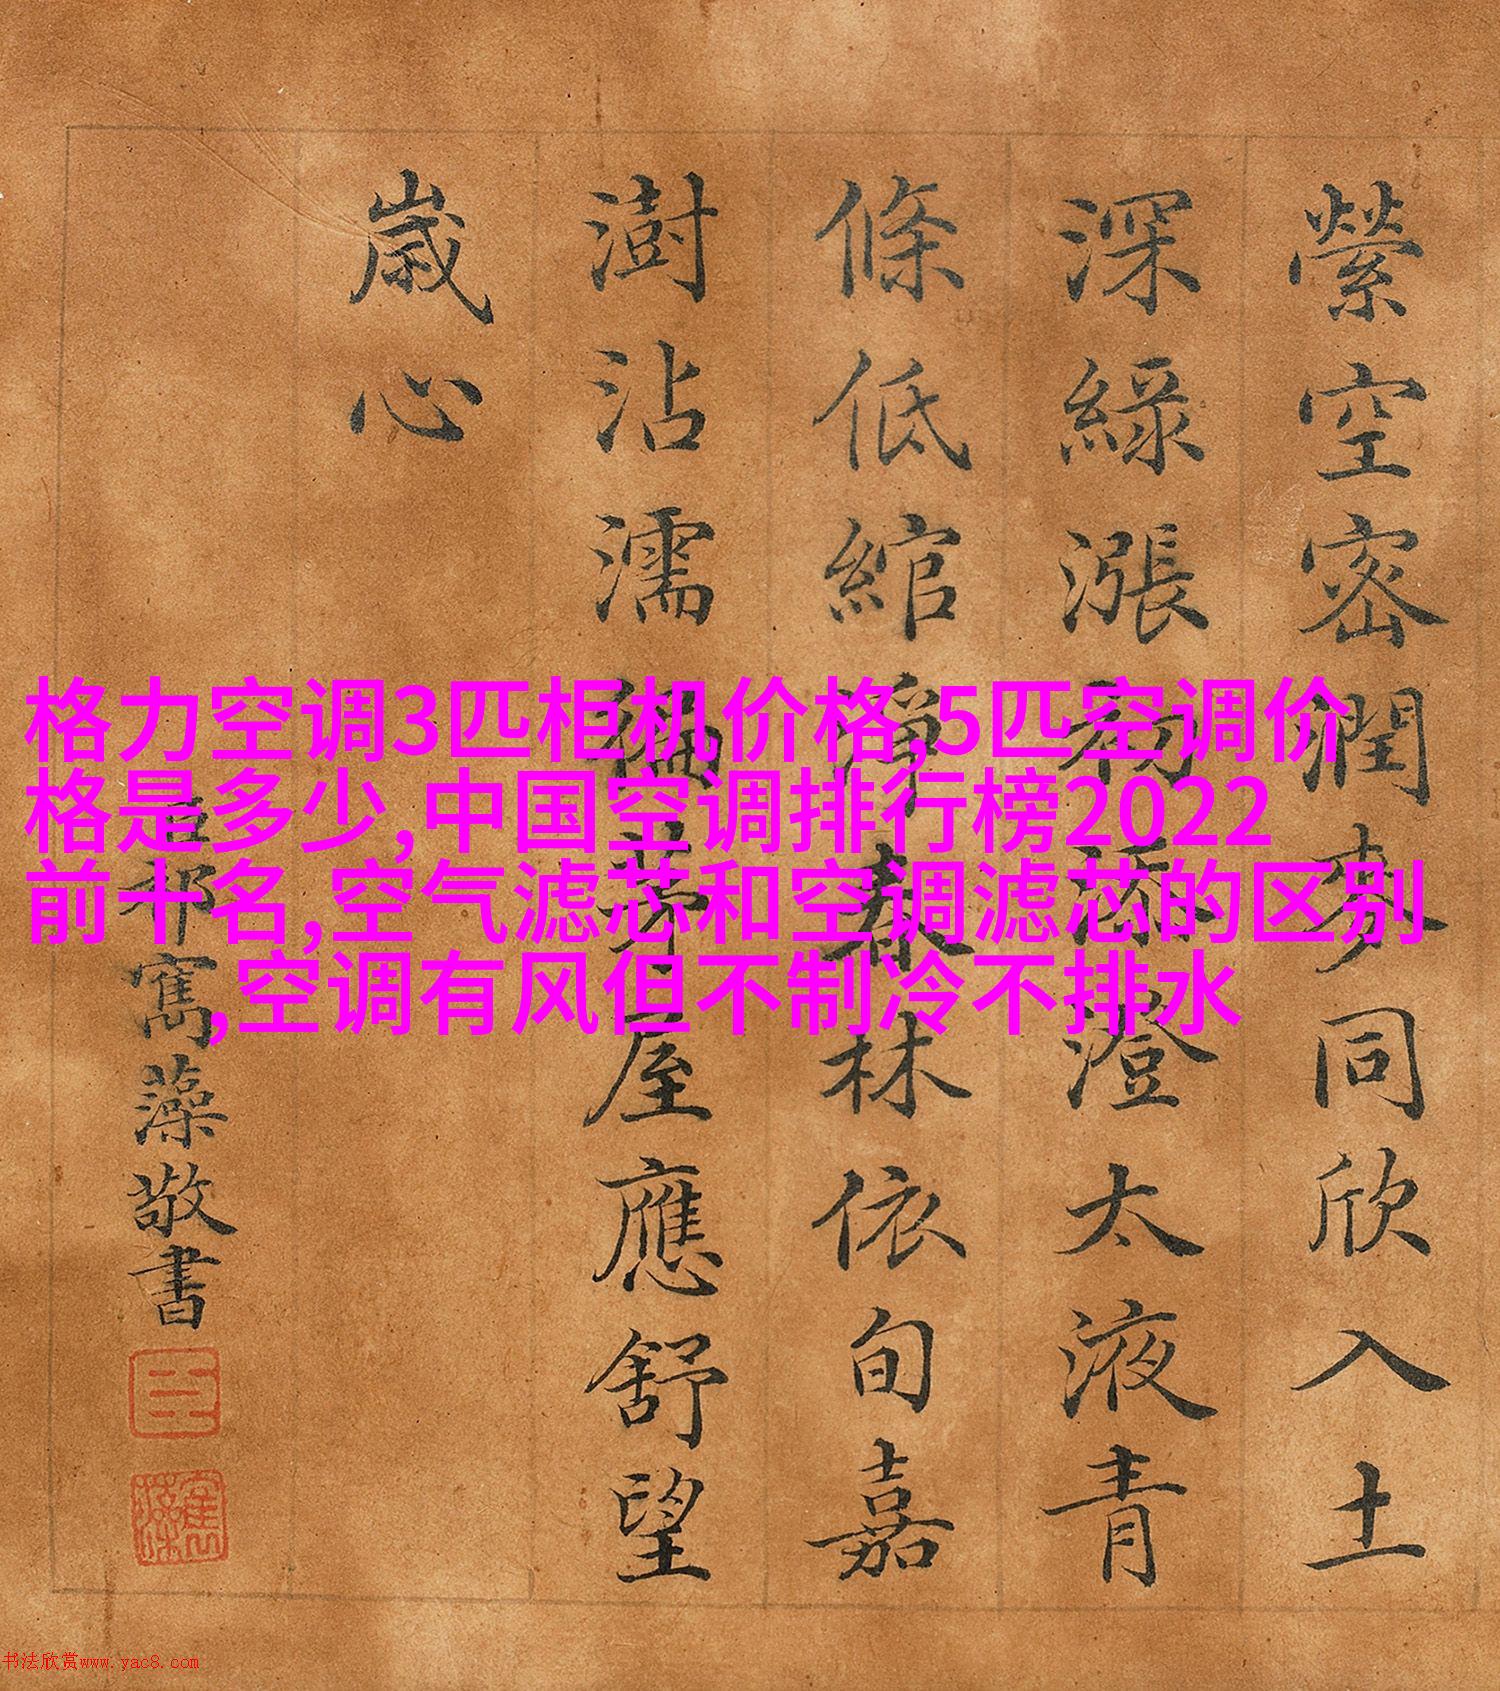 縈空密潤麥同欣入土
深綠漲初添澄太液青
條低綰淨春林依旬嘉
澍沾濡徧茅屋應舒望
歲心
臣邵寯藻敬書
格力空调3匹柜机价格,5匹空调价
格是多少,中国空调排行榜2022
前十名,空气滤芯和空调滤芯的区别
,空调有风但不制冷不排水
书法欣赏www.yac8.com